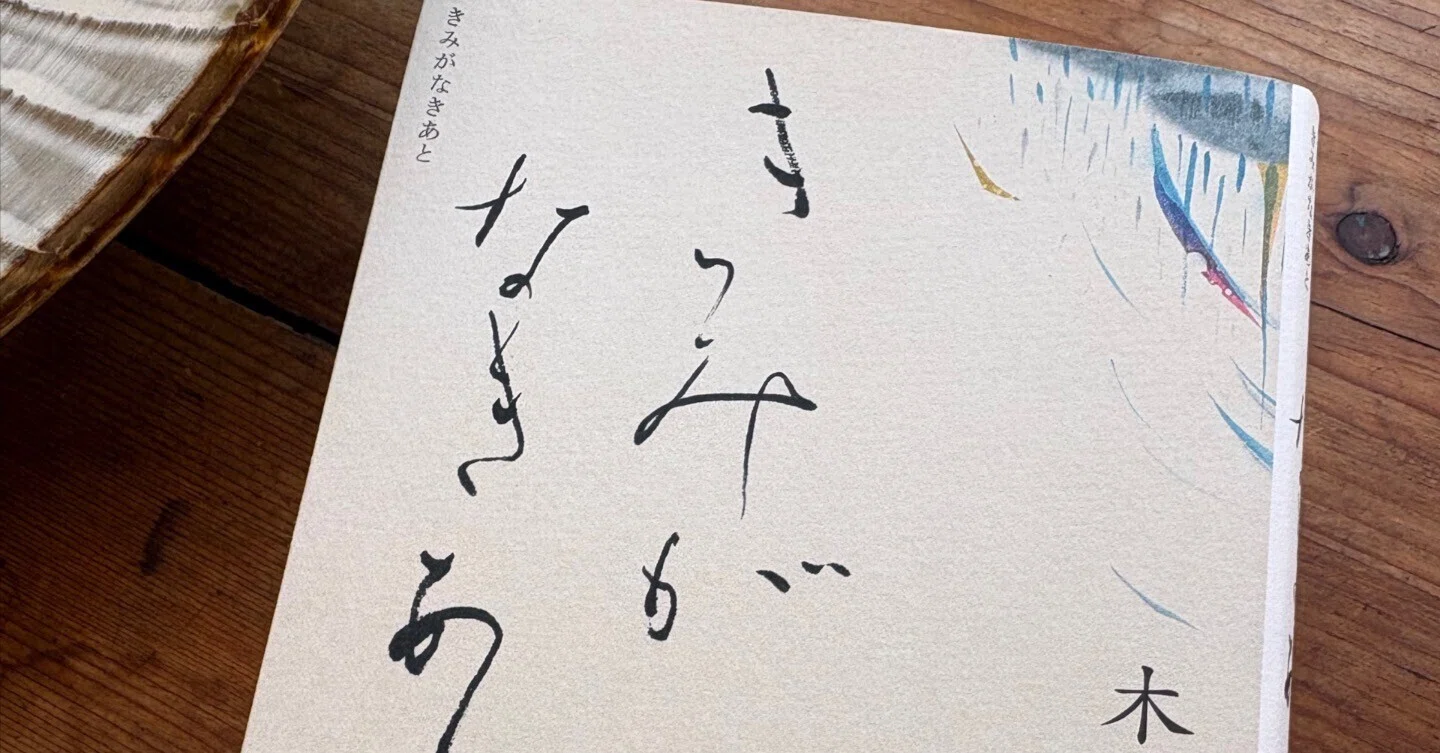 きみが
なきあ
きみがなきあと
木